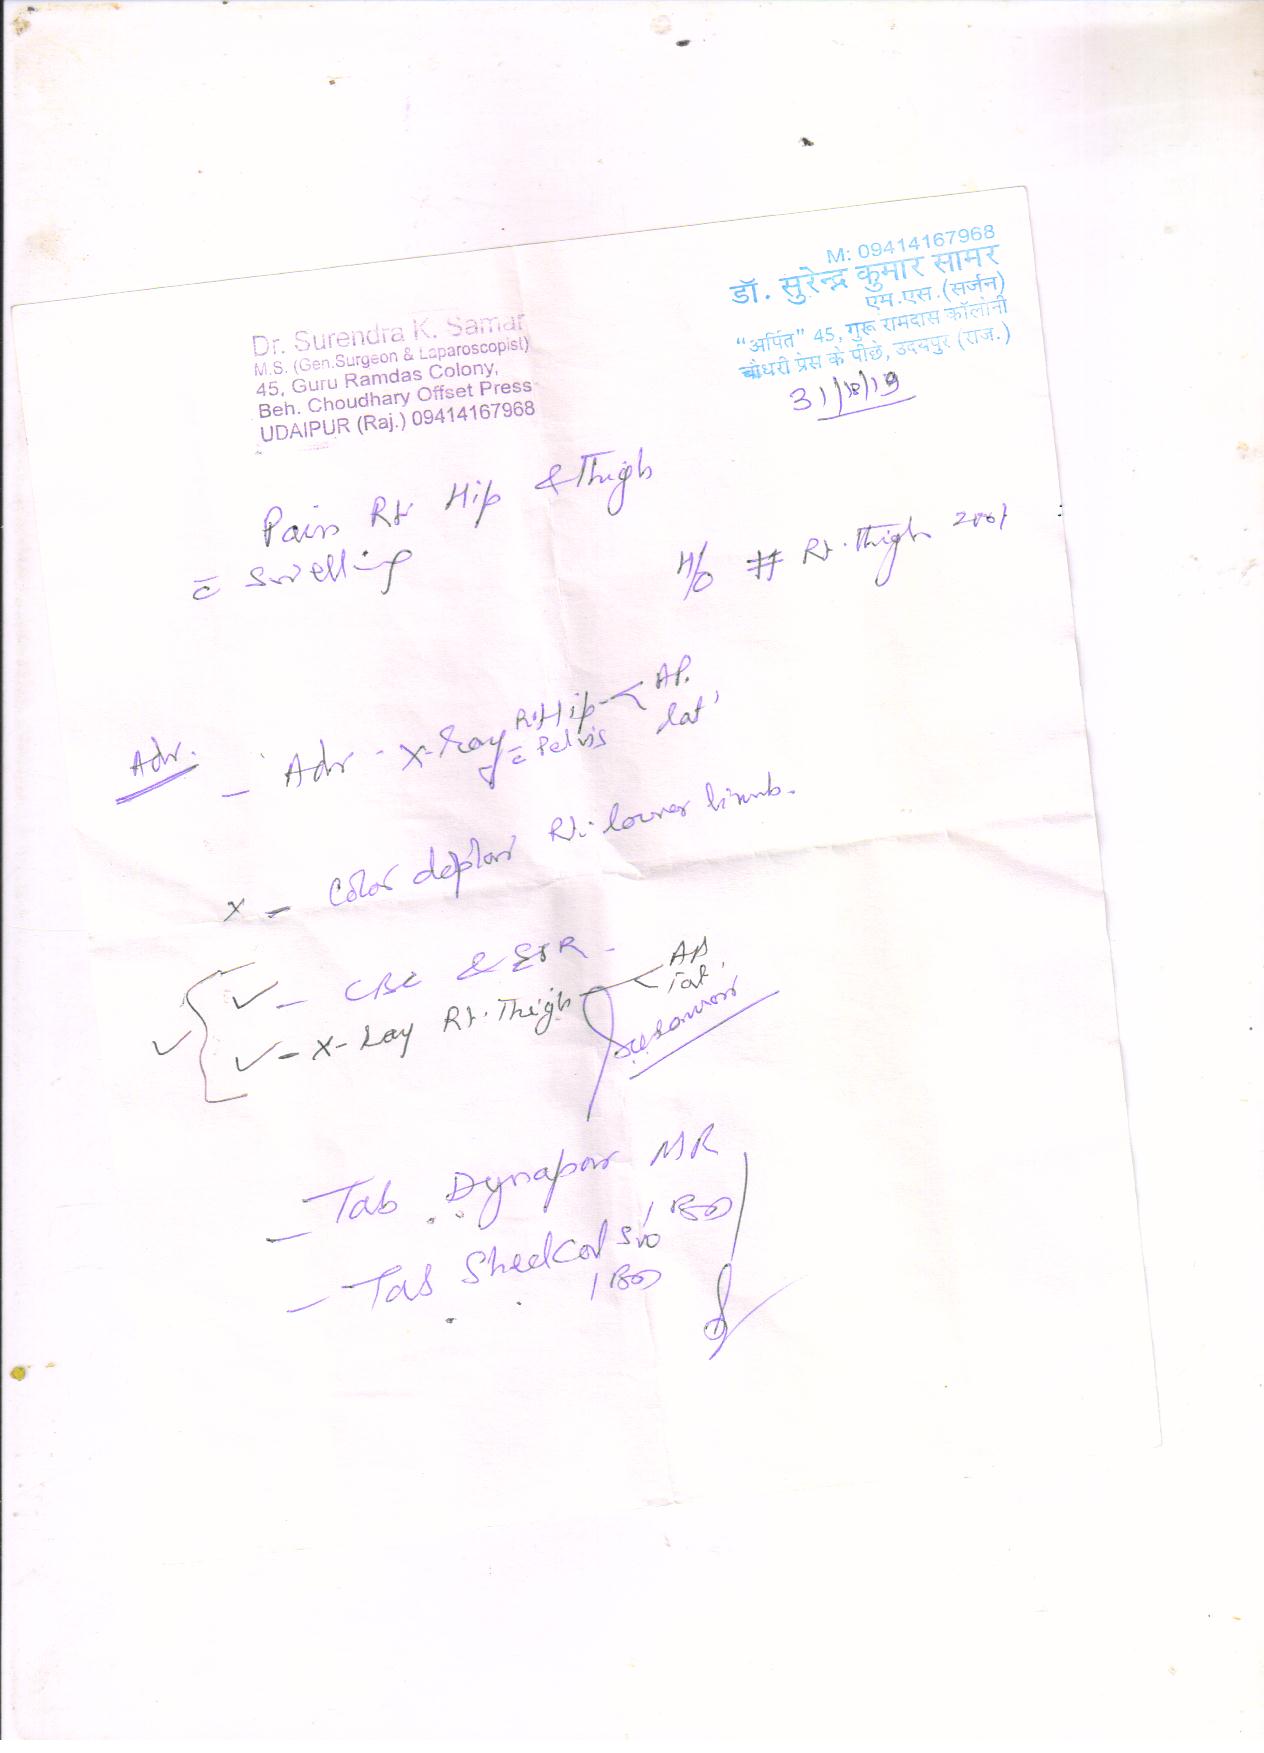 M: 09414167968
डॉ. सुरेन्द्र कुमार सामर
एम.एस.(सर्जन)
“अर्पित” 45, गुरू रामदास कॉलोनी
चौधरी प्रेस के पीछे, उदयपुर (राज.)
Dr. Surendra K. Samar
M.S. (Gen.Surgeon & Laparoscopist)
45, Guru Ramdas Colony,
Beh. Choudhary Offset Press
UDAIPUR (Raj.) 09414167968
Pain Rt Hip & Thigh
c̄ Swelling
H/O # Rt. Thigh 2001
Adv.
- Adv - X-Ray Rt Hip < AP.
c̄ Pelvis lat
x - Color doplar Rt. lower limb.
✓ - CBC & ESR -
✓ - X-Ray Rt. Thigh < AP
lat
- Tab Dynapar MR
1 BD
- Tab
1 BD